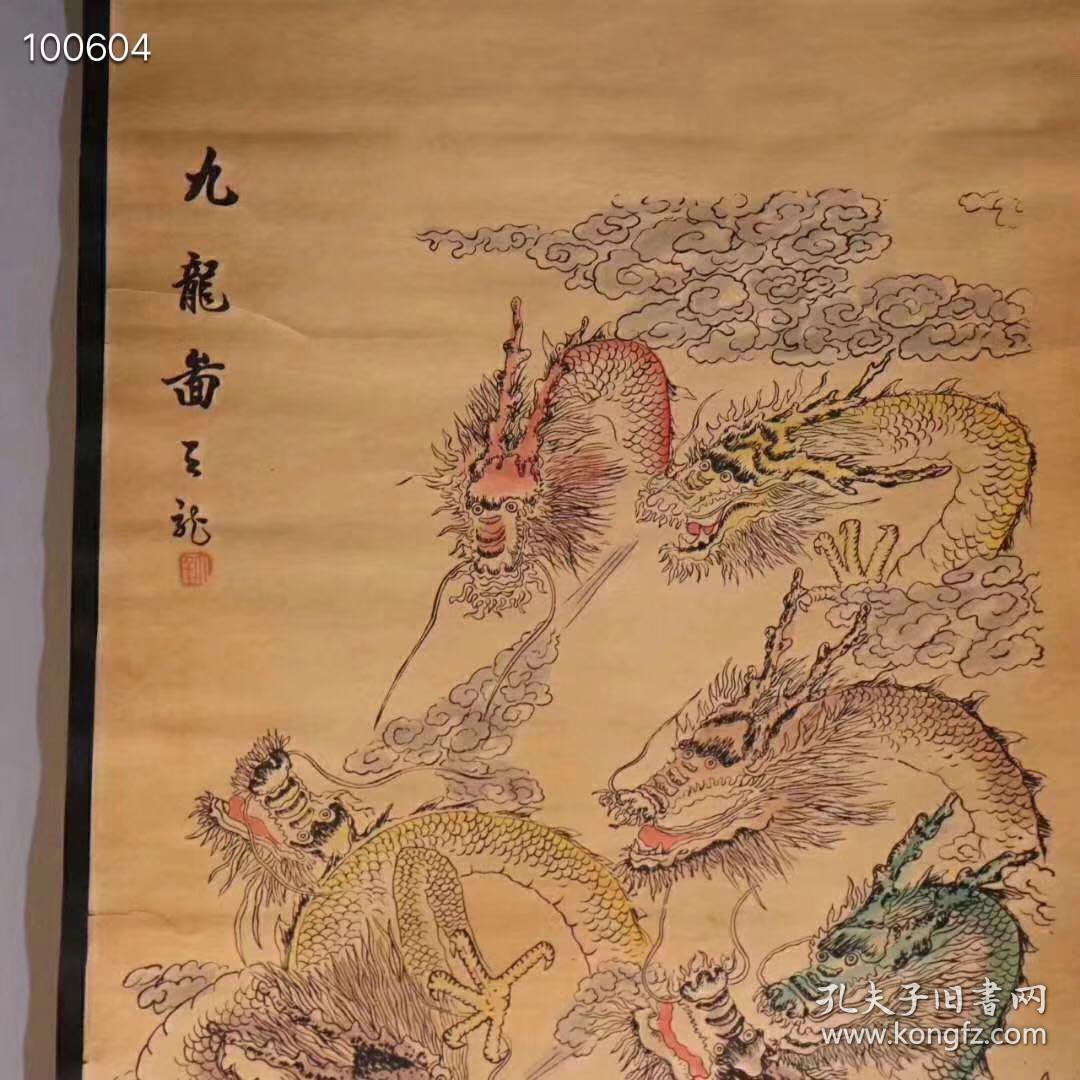 100604
九龍啚
王龍
孔夫子旧書网
www.kongfz.com